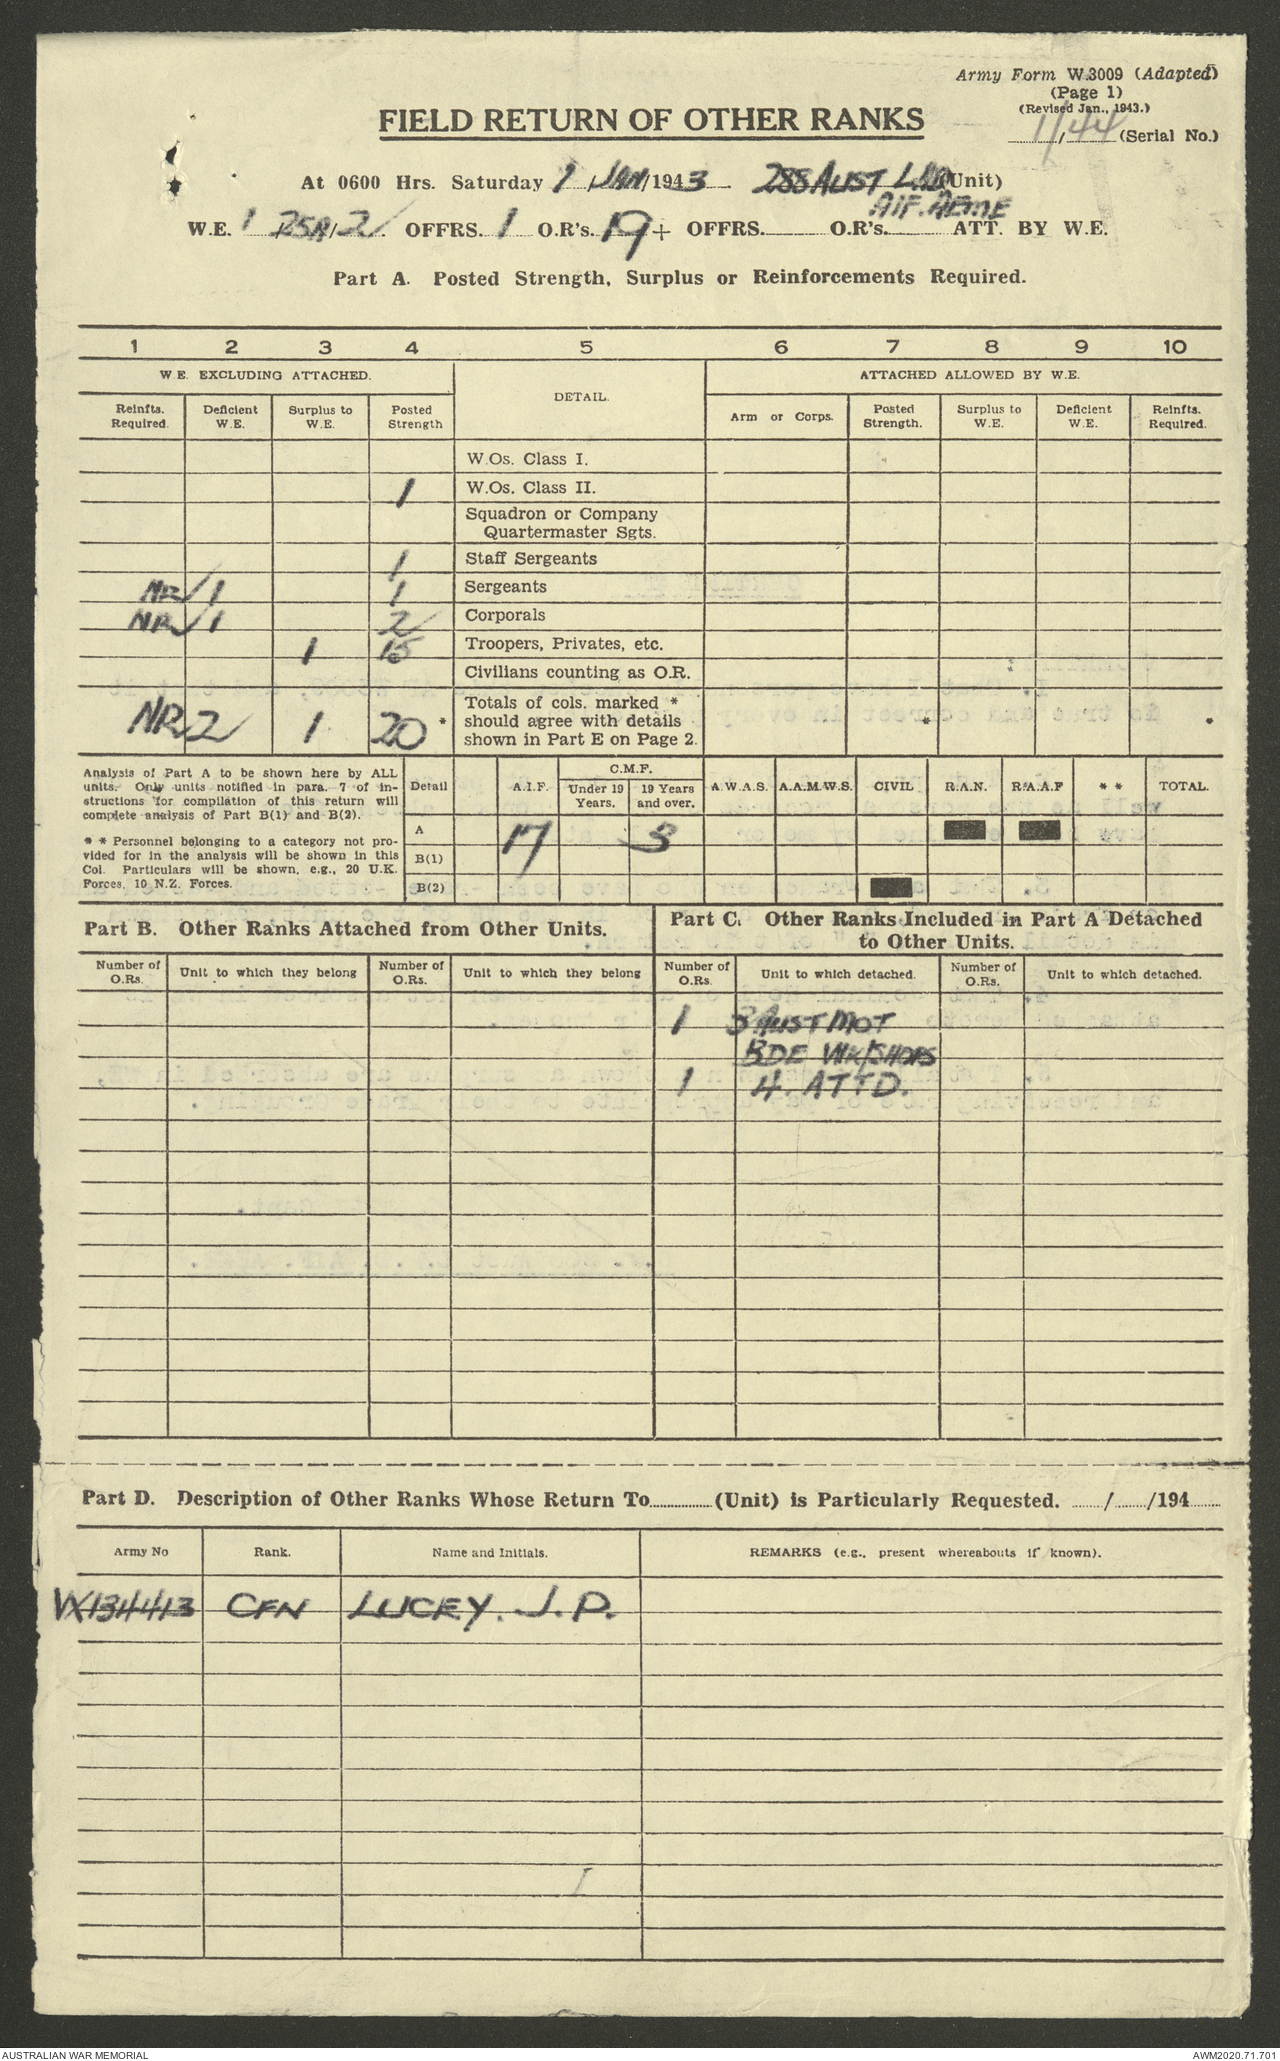 Army Form W.3009 (Adapted)
(Page 1)
(Revised Jan., 1943.)
1/44 (Serial No.)
FIELD RETURN OF OTHER RANKS
At 0600 Hrs. Saturday 1 / JAN /1943 . 288 AUST LAD (Unit)
AIF. AEME
W.E. 1 /25A/2 . OFFRS. 1 O.R's. 19 + OFFRS. O.R's. ATT. BY W.E.
Part A. Posted Strength, Surplus or Reinforcements Required.
1 2 3 4 5 6 7 8 9 10
W.E. EXCLUDING ATTACHED. DETAIL. ATTACHED ALLOWED BY W.E.
Reinfts. Required. Deficient W.E. Surplus to W.E. Posted Strength Arm or Corps. Posted Strength. Surplus to W.E. Deficient W.E. Reinfts. Required.
W.Os. Class I.
1 W.Os. Class II.
Squadron or Company
Quartermaster Sgts.
1 Staff Sergeants
NR 1 1 Sergeants
NR 1 2 Corporals
1 15 Troopers, Privates, etc.
Civilians counting as O.R.
NR 2 1 20 * Totals of cols. marked *
should agree with details * *
shown in Part E on Page 2.
Analysis of Part A to be shown here by ALL
units. Only units notified in para. 7 of in-
structions for compilation of this return will
complete analysis of Part B(1) and B(2).
* * Personnel belonging to a category not pro-
vided for in the analysis will be shown in this
Col. Particulars will be shown, e.g., 20 U.K.
Forces, 10 N.Z. Forces.
Detail A.I.F. C.M.F. Under 19 Years. 19 Years and over. A.W.A.S. A.A.M.W.S. CIVIL R.A.N. R.A.A.F * * TOTAL.
A 17 3
B(1)
B(2)
Part B. Other Ranks Attached from Other Units.
Part C. Other Ranks Included in Part A Detached
to Other Units.
Number of O.Rs. Unit to which they belong Number of O.Rs. Unit to which they belong Number of O.Rs. Unit to which detached. Number of O.Rs. Unit to which detached.
1 3 AUST MOT
BDE WK/SHOPS
1 4. ATTD.
Part D. Description of Other Ranks Whose Return To (Unit) is Particularly Requested. / /194
Army No Rank. Name and Initials. REMARKS (e.g., present whereabouts if known).
VX134413 CFN LUCEY. J. P.
AUSTRALIAN WAR MEMORIAL
AWM2020.71.701